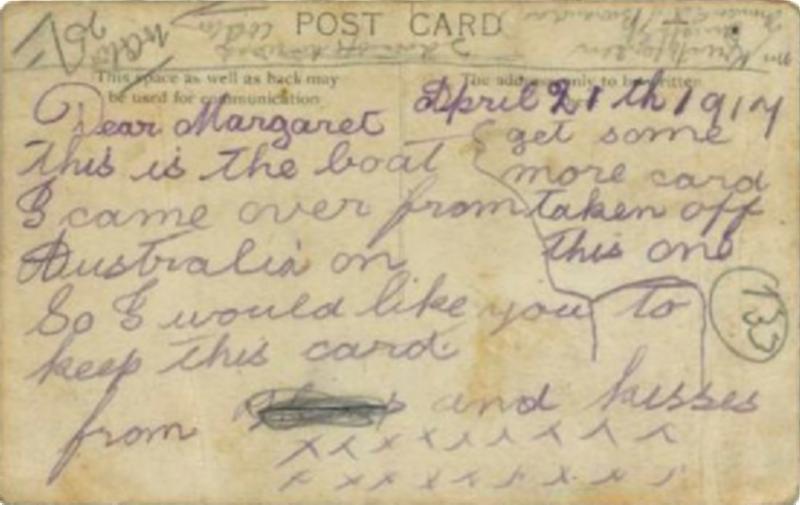 POST CARD
This space as well as back may
be used for communication
The address only to be written
April 21th 1917
Dear Margaret
this is the boat
I came over from
Australia on
So I would like you to
keep this card
from and kisses
x x x x x x x x x
x x x x x x x x x
get some
more card
taken off
this one
133